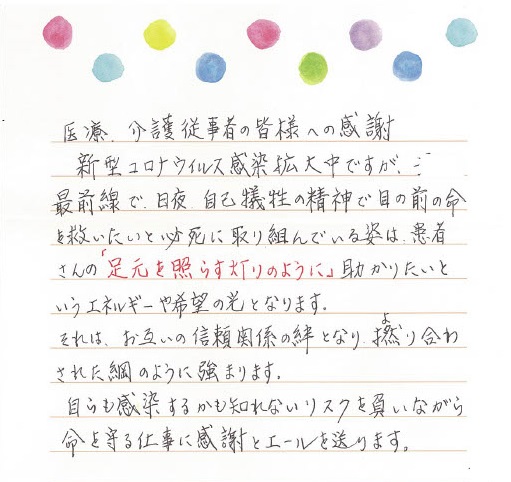 医療、介護従事者の皆様への感謝
新型コロナウイルス感染拡大中ですが、
最前線で、日夜、自己犠牲の精神で目の前の命
を救いたいと必死に取り組んでいる姿は、患者
さんの「足元を照らす灯りのように」助かりたいと
いうエネルギーや希望の光となります。
それは、お互いの信頼関係の絆となり、撚り合わ
よ
された綱のように強まります。
自らも感染するかも知れないリスクを負いながら
命を守る仕事に感謝とエールを送ります。